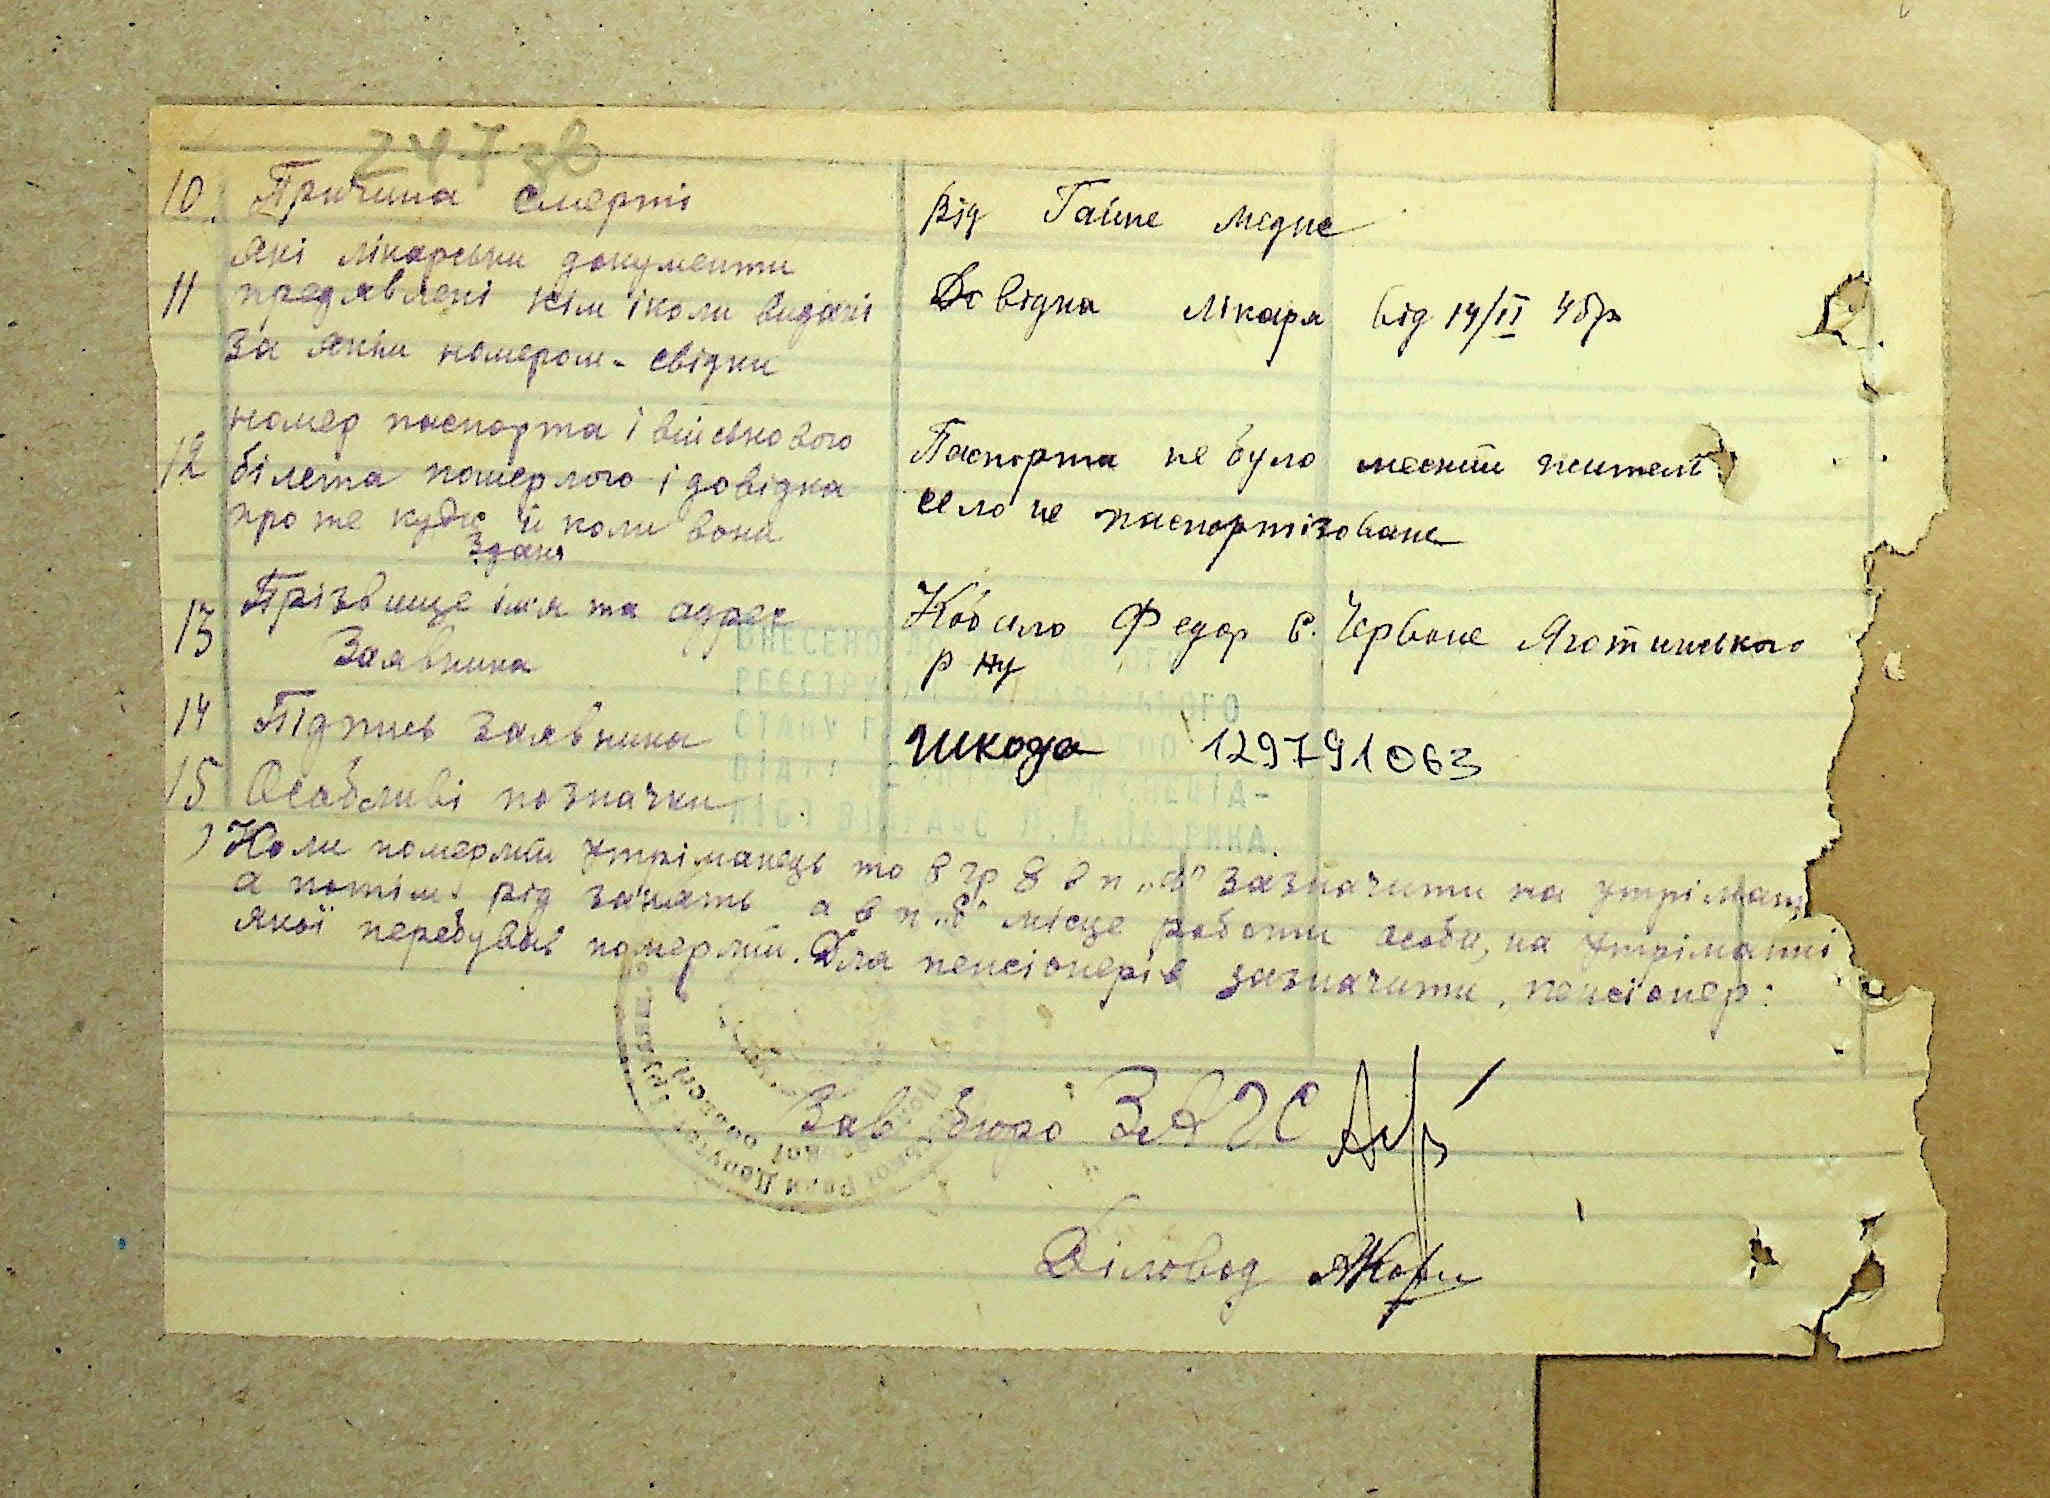 247 зв
10. Причина смерті
Від Гайне медне
Які лікарськи документи
11 предявлені кім і коли видані
за якім номером - свідки
Довідка лікаря від 14/II 46р
номер паспорта і військового
12 білета померлого і довідка
про те куди й коли вони
здані
Паспорта не було меский жител
село не паспортізоване
13 Прізвище імя та адрес
Заявника
Кобило Федор с. Червоне Яготинського
р ну
14 Підпись заявника
Шкода 129791063
15 Особливі позначки
) Коли померлий утріманець то в гр 8 в п „а" зазначити на утріман
а потім від занять а в п „б" місце роботи особи, на утріманні
якої перебував померлий. Для пенсіонерів зазначити, пенсіонер:
Зав бюро ЗАГС
Діловод